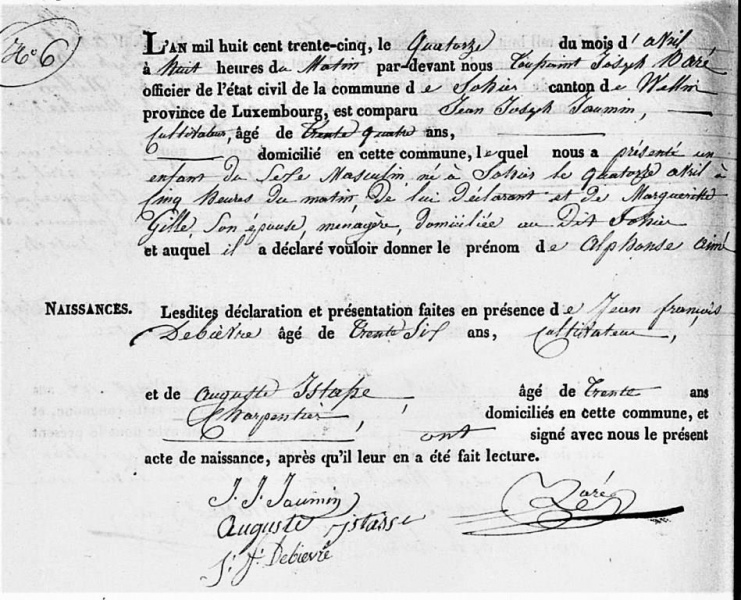 N.° 6
L'AN mil huit cent trente-cinq, le Quatorze du mois d' avril
à huit heures du Matin par-devant nous Toussaint Joseph Zaré
officier de l'état civil de la commune de Sohier canton de Wellin
province de Luxembourg, est comparu Jean Joseph Jaumin,
Cultivateur, âgé de trente quatre ans,
domicilié en cette commune, lequel nous a présenté un
enfant du sexe Masculin né à Sohier le quatorze avril à
Cinq heures du matin, de lui déclarant et de Marguerite
Gille, Son épouse, ménagère, domiciliée au dit Sohier
et auquel il a déclaré vouloir donner le prénom de Alphonse aimé
NAISSANCES. Lesdites déclaration et présentation faites en présence de Jean françois
Debièvre âgé de trente Six ans, Cultivateur,
et de auguste Istasse âgé de trente ans
Charpentier, domiciliés en cette commune, et
ont signé avec nous le présent
acte de naissance, après qu'il leur en a été fait lecture.
J. J. Jaumin Zaré
auguste istasse
j. f. Debievre